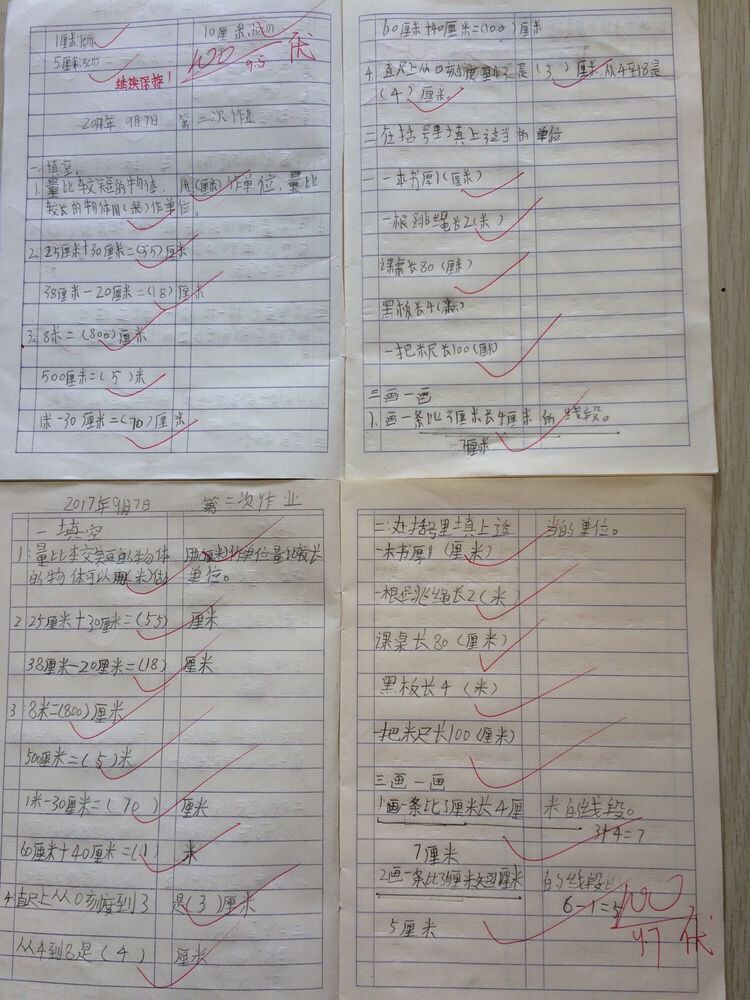 1厘米1cm
10厘米10cm
5厘米5cm
继续保持!
100
9.5
2017年9月7日 第二次作业
一.填空.
1.量比较短的物体,用(厘米)作单位,量比
较长的物体用(米)作单位。
2.25厘米+30厘米=(55)厘米
38厘米-20厘米=(18)厘米
3.8米=(800)厘米
500厘米=(5)米
1米-30厘米=(70)厘米
60厘米+40厘米=(100)厘米
4.直尺上从0刻度到3是(3)厘米,从4到8是
(4)厘米。
二在括号里填上适当的单位
一本书厚1(厘米)
一根跳绳长2(米)
课桌长80(厘米)
黑板长4(米)
一把米尺长100(厘米)
三画一画
1.画一条比3厘米长4厘米的线段。
7厘米
2017年9月7日 第二次作业
一填空
1.量比较短的物体 用(厘米)作单位量比较长
的物体可以用(米)做单位。
2 25厘米+30厘米=(55)厘米
38厘米-20厘米=(18)厘米
3 8米=(800)厘米
500厘米=(5)米
1米-30厘米=(70)厘米
60厘米+40厘米=(1)米
4直尺上从0刻度到3是(3)厘米
从4到8是(4)厘米
二:在括号里填上适当的单位。
一本书厚1(厘米)
一根跳绳长2(米)
课桌长80(厘米)
黑板长4(米)
一把米尺长100(厘米)
三画一画
1画一条比3厘米长4厘米的线段。
3+4=7
7厘米
2画一条比6厘米短1厘米的线段
6-1=5
5厘米
100
9.7